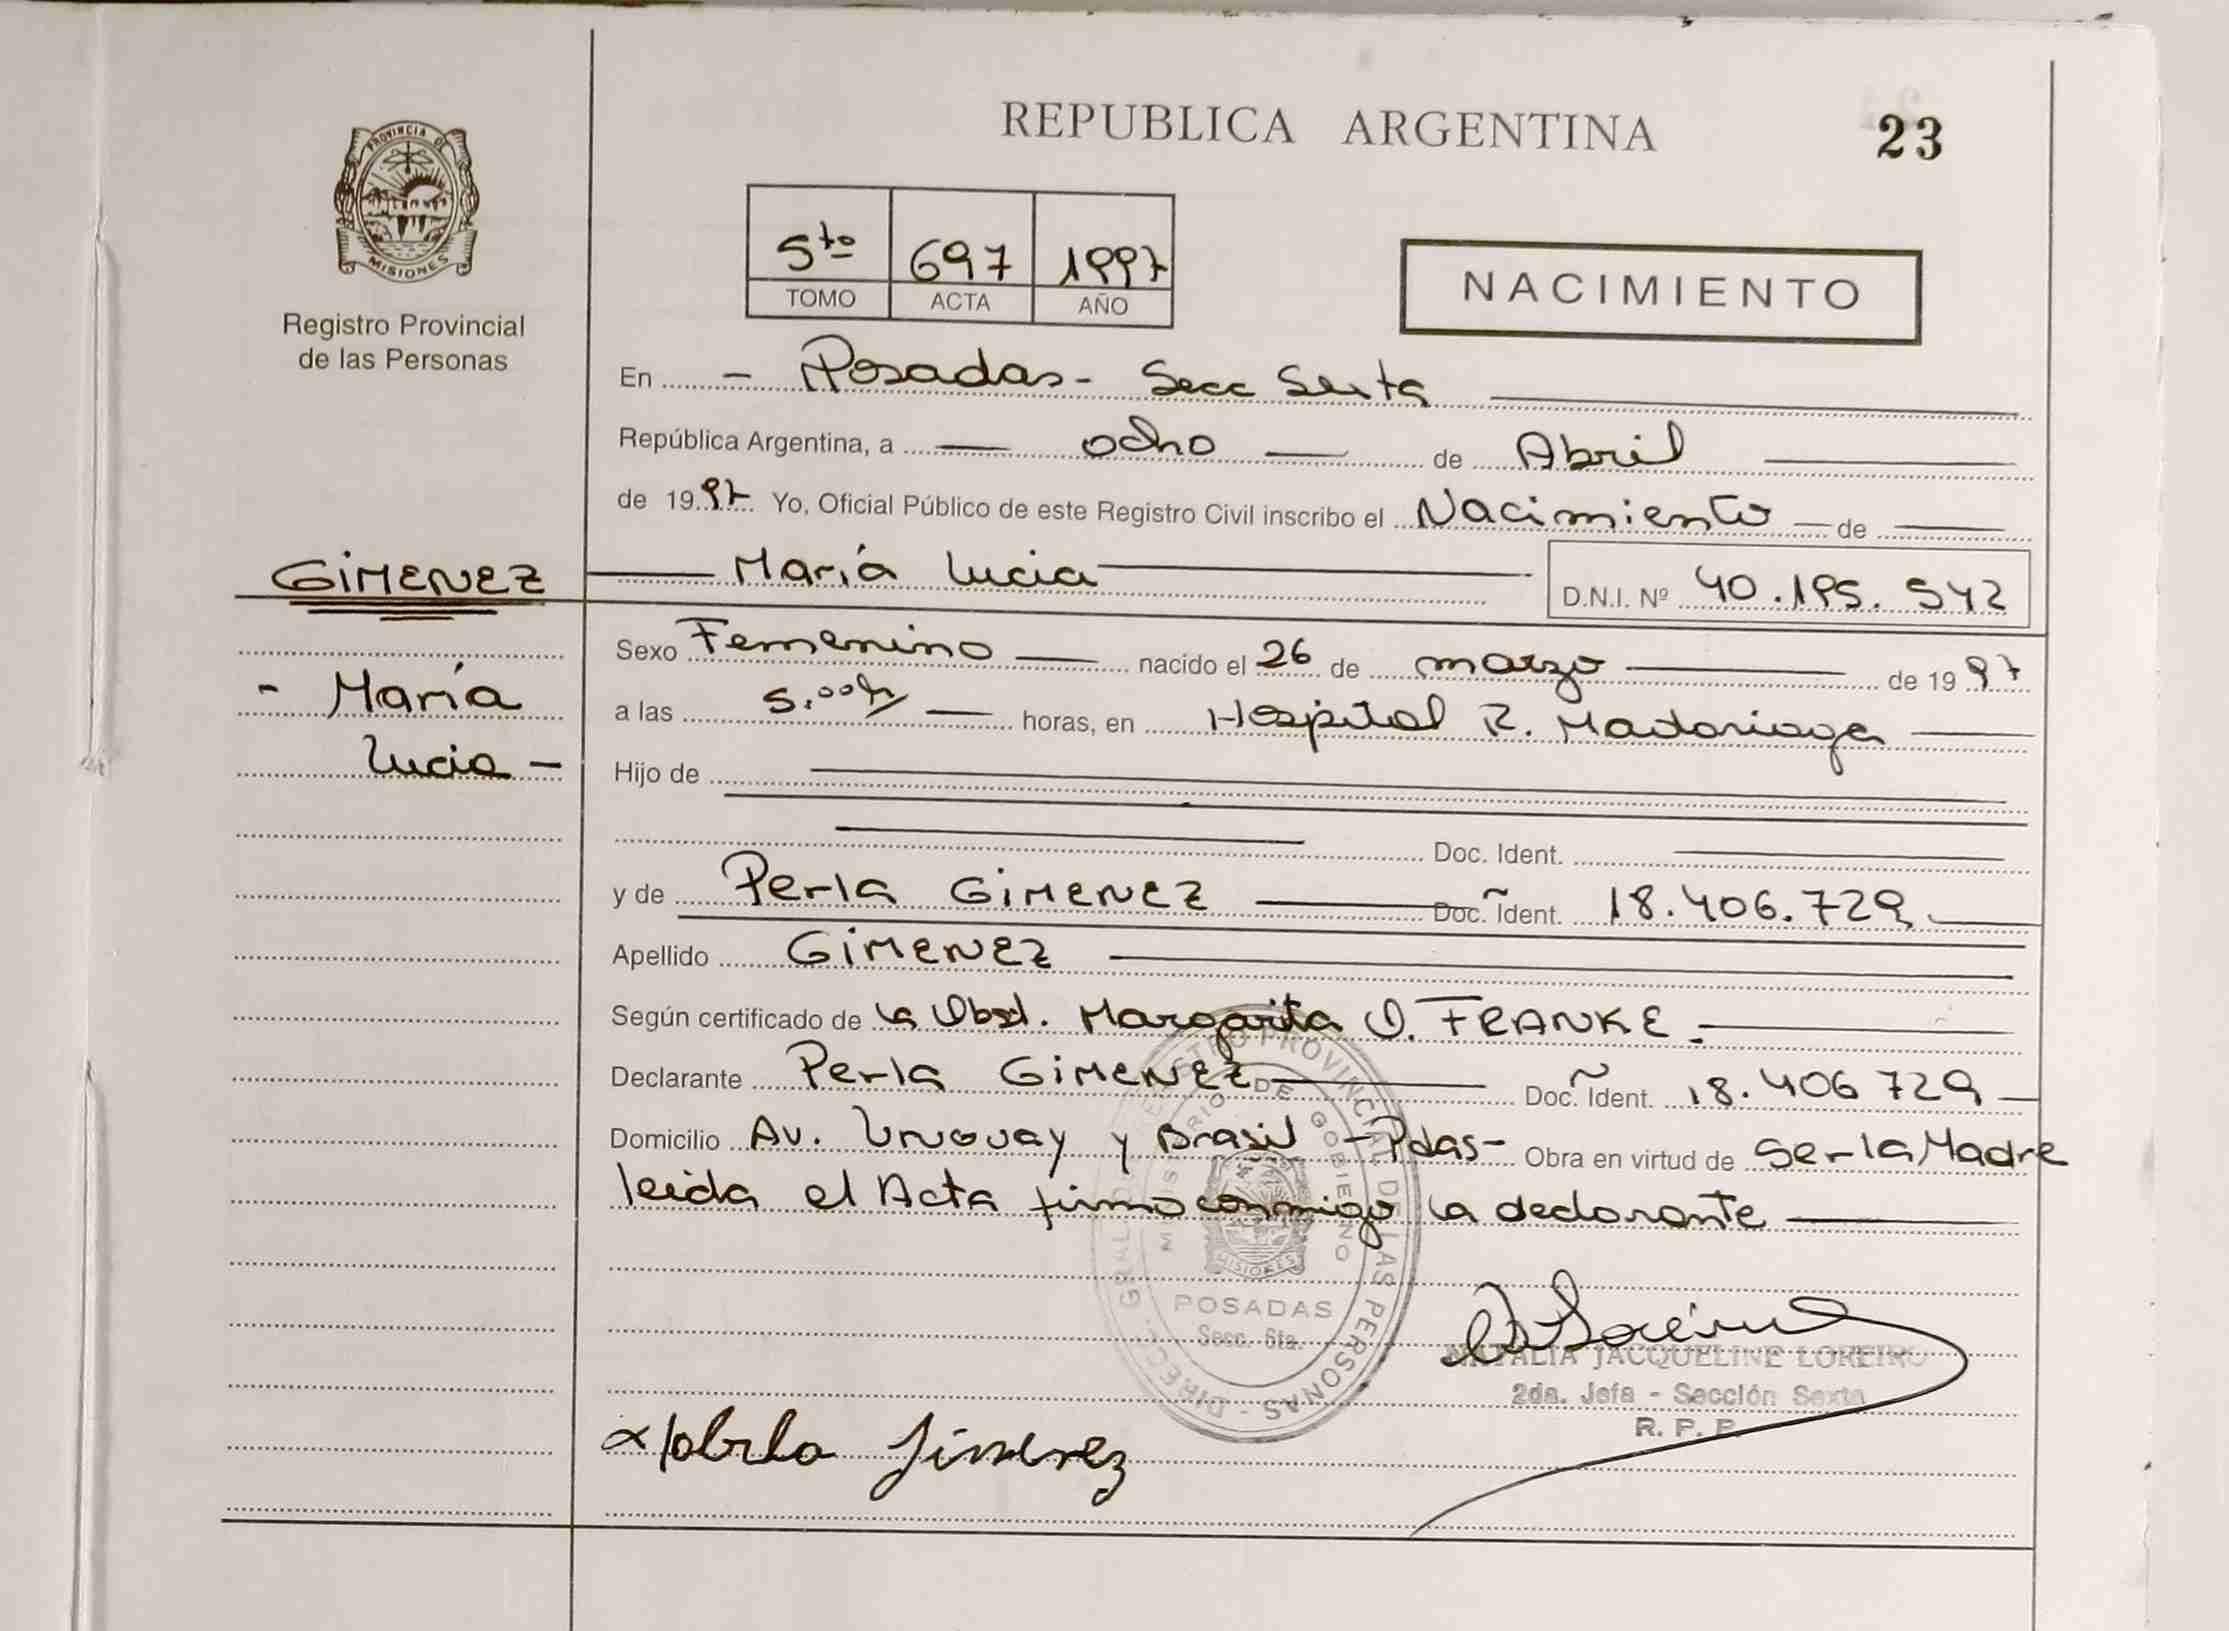 REPUBLICA ARGENTINA
23
PROVINCIA DE
MISIONES
Registro Provincial
de las Personas
5to 697 1997
TOMO ACTA AÑO
NACIMIENTO
En - Posadas - Secc Sexta
República Argentina, a ocho de Abril
de 1997 Yo, Oficial Público de este Registro Civil inscribo el Nacimiento de
GIMENEZ María Lucia D.N.I. Nº 40.195.542
Sexo Femenino nacido el 26 de marzo de 1997
- María
a las 5,00 hs horas, en Hospital R. Madariaga
Lucia -
Hijo de
Doc. Ident.
y de Perla GIMENEZ Doc. Ident. 18.406.729
Apellido GIMENEZ
Según certificado de la Obst. Margarita O. FRANKE.
Declarante Perla GIMENEZ Doc. Ident. 18.406729
Domicilio Av. Uruguay y Brasil - Pdas - Obra en virtud de ser la Madre
leida el Acta firma conmigo la declarante
DIRECC. GRAL. DE REGISTRO PROVINCIAL DE LAS PERSONAS -
MINISTERIO DE GOBIERNO
MISIONES
POSADAS
Secc. 6ta.
NATALIA JACQUELINE LOREIRO
2da. Jefa - Sección Sexta
R. P. P.
Jimenez